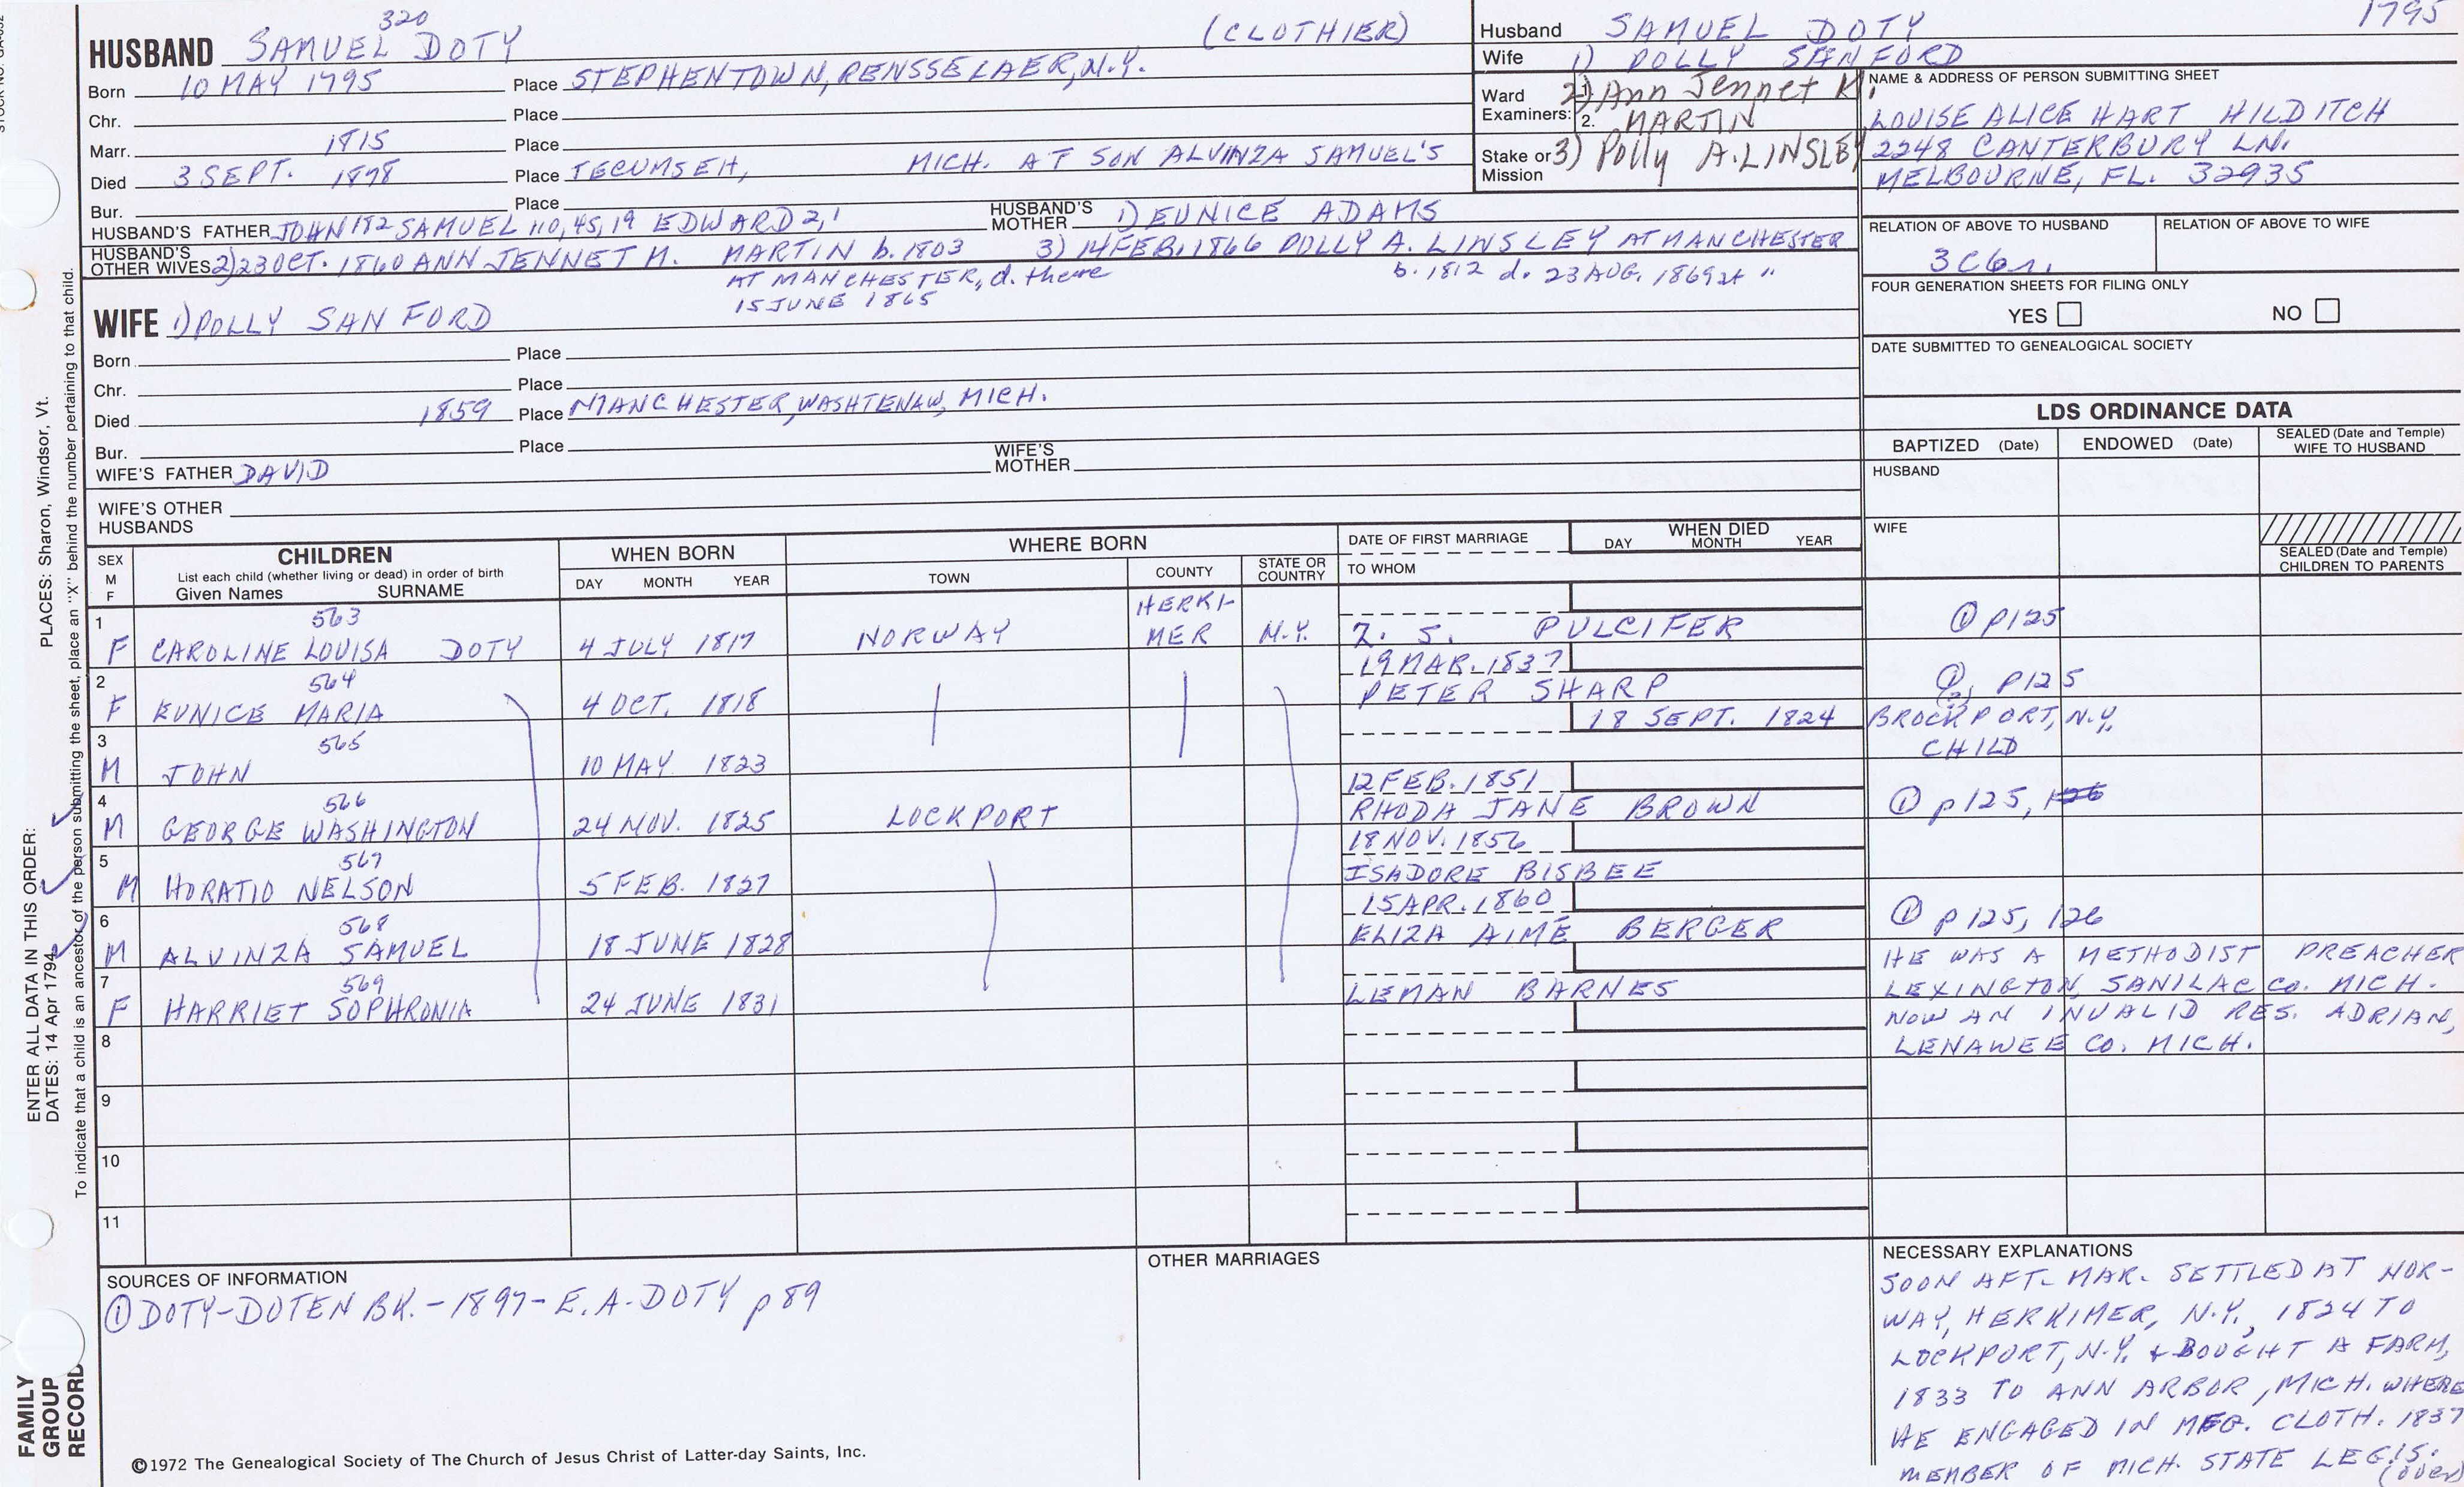 320
HUSBAND SAMUEL DOTY (CLOTHIER)
Born 10 MAY 1795 Place STEPHENTOWN, RENSSELAER, N.Y.
Chr. Place
Marr. 1815 Place
Died 3 SEPT. 1878 Place TECUMSEH, MICH. AT SON ALVINZA SAMUEL'S
Bur. Place
HUSBAND'S FATHER JOHN 192 SAMUEL 110, 45, 19 EDWARD 2, 1 HUSBAND'S MOTHER 1) EUNICE ADAMS
HUSBAND'S OTHER WIVES 2) 23 OCT. 1860 ANN JENNET M. MARTIN b. 1803 3) 14 FEB. 1866 POLLY A. LINSLEY AT MANCHESTER
AT MANCHESTER, d. there b. 1812 d. 23 AUG. 1869 at "
15 JUNE 1865
WIFE 1) POLLY SANFORD
Born Place
Chr. Place
Died 1859 Place MANCHESTER, WASHTENAW, MICH.
Bur. Place
WIFE'S FATHER DAVID WIFE'S MOTHER
WIFE'S OTHER HUSBANDS
1795
Husband SAMUEL DOTY
Wife 1) POLLY SANFORD
Ward Examiners: 1. 2) Ann Jennet M.
2. MARTIN
Stake or Mission 3) Polly A. LINSLEY
NAME & ADDRESS OF PERSON SUBMITTING SHEET
LOUISE ALICE HART HILDITCH
2248 CANTERBURY LN.
MELBOURNE, FL. 32935
RELATION OF ABOVE TO HUSBAND RELATION OF ABOVE TO WIFE
3C6r.
FOUR GENERATION SHEETS FOR FILING ONLY
YES NO
DATE SUBMITTED TO GENEALOGICAL SOCIETY
LDS ORDINANCE DATA
BAPTIZED (Date) ENDOWED (Date) SEALED (Date and Temple) WIFE TO HUSBAND
HUSBAND
WIFE
SEALED (Date and Temple) CHILDREN TO PARENTS
SEX M F CHILDREN WHEN BORN WHERE BORN DATE OF FIRST MARRIAGE WHEN DIED
List each child (whether living or dead) in order of birth DAY MONTH YEAR TOWN COUNTY STATE OR COUNTRY TO WHOM DAY MONTH YEAR
Given Names SURNAME
1 563 HERKI-
F CAROLINE LOUISA DOTY 4 JULY 1817 NORWAY MER N.Y. Z. S. PULCIFER ① p125
2 564 19 MAR. 1837
F EUNICE MARIA 4 OCT. 1818 PETER SHARP ① p125
3 565 18 SEPT. 1824 BROCKPORT, N.Y.
M JOHN 10 MAY 1823 CHILD
4 566 12 FEB. 1851
M GEORGE WASHINGTON 24 NOV. 1825 LOCKPORT RHODA JANE BROWN ① p125, 126
5 567 18 NOV. 1856
M HORATIO NELSON 5 FEB. 1827 ISADORE BISBEE
6 568 15 APR. 1860
M ALVINZA SAMUEL 18 JUNE 1828 ELIZA AIMÉ BERGER ① p125, 126
7 569 HE WAS A METHODIST PREACHER
F HARRIET SOPHRONIA 24 JUNE 1831 LEMAN BARNES LEXINGTON, SANILAC CO. MICH.
8 NOW AN INVALID RES. ADRIAN,
LENAWEE CO. MICH.
9
10
11
SOURCES OF INFORMATION
① DOTY-DOTEN BK. - 1897 - E. A. DOTY p 89
OTHER MARRIAGES
NECESSARY EXPLANATIONS
SOON AFT. MAR. SETTLED AT NOR-
WAY, HERKIMER, N.Y., 1824 TO
LOCKPORT, N.Y. & BOUGHT A FARM,
1833 TO ANN ARBOR, MICH. WHERE
HE ENGAGED IN MFG. CLOTH. 1837
MEMBER OF MICH. STATE LEGIS.
(over)
©1972 The Genealogical Society of The Church of Jesus Christ of Latter-day Saints, Inc.
FAMILY GROUP RECORD
ENTER ALL DATA IN THIS ORDER:
DATES: 14 Apr 1794
PLACES: Sharon, Windsor, Vt.
To indicate that a child is an ancestor of the person submitting the sheet, place an "X" behind the number pertaining to that child.